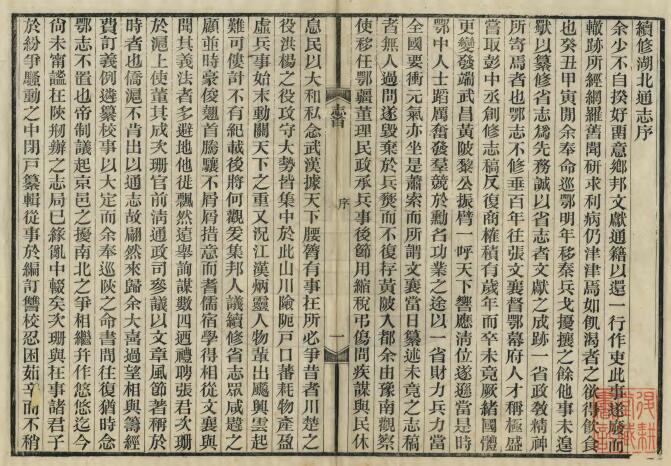 續修湖北通志序
余少不自揆好畱意鄉邦文獻通籍以還一行作吏此事遂廢而
轍跡所經網羅舊聞研求利病仍津津焉如飢渴者之欲得飲食
也癸丑甲寅閒余奉命巡鄂明年移秦兵戈擾攘之餘他事未遑
獻以纂修省志爲先務誠以省志者文獻之成跡一省政敎精神
所寄焉者也鄂志不修垂百年往張文襄督鄂幕府人才稱極盛
嘗取彭中丞創修志稿反復商榷積有歲年而卒未竟厥緒國體
更變發端武昌黃陂黎公振臂一呼天下響應清位遂遜當是時
鄂中人士蹈厲奮發羣競於勳名功業之途以一省財力兵力當
全國要衝元氣亦坐是蕭索而所謂文襄當日纂述未竟之志稿
者無人過問遂毀棄於兵燹而不復存黃陂入都余由豫南觀察
使移任鄂疆董理民政承兵事後節用縮稅弔傷問疾謀與民休
序
一
息民以大和私念武漢據天下腰膂有事在所必爭昔者川楚之
役洪楊之役攻守大勢皆集中於此山川險阨戶口蕃耗物產盈
虛兵事始末動關天下之重又況江漢炳靈人物輩出飈興雲起
難可僂計不有紀載後將何觀爰集邦人議續修省志眾咸韙之
顧並時豪俊翹首騰驤不屑屑措意而耆儒宿學得相從文襄與
聞其義法者多避地他徙飄然遠舉詢謀數四迺禮聘張君次珊
於滬上使董其成次珊官前清通政司參議以文章風節著稱於
時者也僑滬不肯出以通志故翩然來歸余大喜過望相與籌經
費訂義例遴纂校事以大定而余奉巡陝之命書問往復猶時念
鄂志不置也帝制議起京邑之擾南北之爭相繼幷作悠悠迄今
尙未甯謐在陝剏辦之志局已緣亂中輟矣次珊與在事諸君子
於紛爭騷動之中閉戶纂輯從事於編訂讐校忍困茹辛而不稍